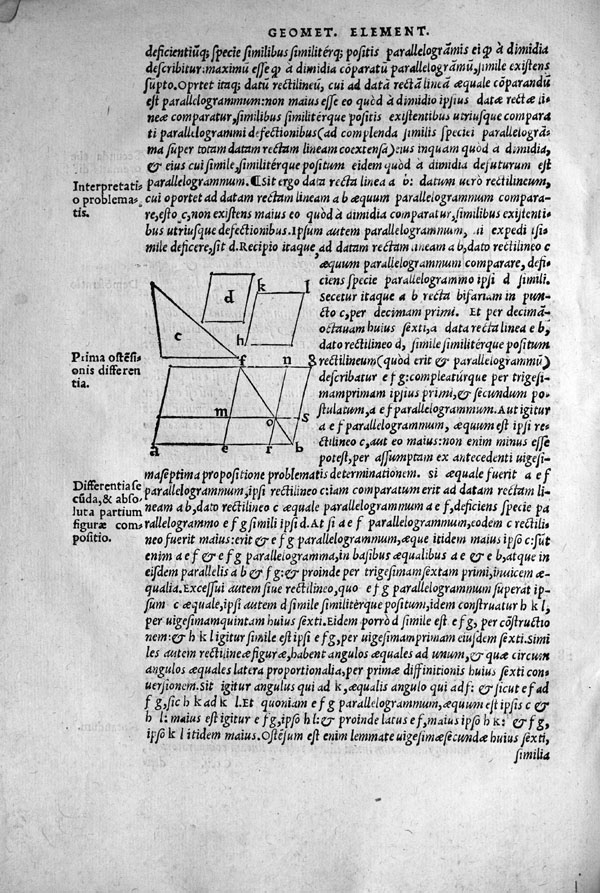 GEOMET. ELEMENT.
deficientiũq; specie similibus similitérq; positis parallelogrãmis ei q̃ à dimidia
describitur: maximũ esse q̃ à dimidia cõparatũ parallelogrãmũ, simile existens
supto. Oprtet itaq; datũ rectilineũ, cui ad datã rectã lineã æquale cõparandũ
est parallelogrammum: non maius esse eo quòd à dimidio ipsius datæ rectæ li-
neæ comparatur, similibus similitérque positis existentibus utriusque compara
ti parallelogrammi defectionibus (ad complenda similis speciei parallelogrã-
ma super totam datam rectam lineam coextensa) eius inquam quòd à dimidia,
& eius cui simile, similitérque positum eidem quòd à dimidia defuturum est
parallelogrammum. ¶Sit ergo data recta linea a b: datum uerò rectilineum,
Interpretati-
o problema-
tis.
cui oportet ad datam rectam lineam a b æquum parallelogrammum compara-
re, esto c, non existens maius eo quòd à dimidia comparatur, similibus existenti-
bus utriusque defectionibus. Ipsum autem parallelogrammum, expedi
mile deficere, sit d. Recipio itaque, ad datam rectam lineam a b, dato rectilineo c
æquum parallelogrammum comparare, defi-
ciens specie parallelogrammo ipsi d simili.
Secetur itaque a b recta bifariam in pun-
cto e, per decimam primi. Et per decimã-
octauam huius sexti, a data recta linea e b,
dato rectilineo d, simile similitérque positum
rectilineum (quòd erit & parallelogrammũ)
describatur e f g: compleatúrque per trigesi-
mamprimam ipsius primi, & secundum po-
stulatum, a e f parallelogrammum. Aut igitur
a e f parallelogrammum, æquum est ipsi re-
ctilineo c, aut eo maius: non enim minus esse
potest, per assumptam ex antecedenti uigesi-
Prima ostẽsi-
onis differen
tia.
d
k
l
c
h
f
n
g
m
o
s
a
e
r
b
maseptima propositione problematis determinationem. Si æquale fuerit a e f
Differentia se
cũda, & abso-
luta partium
figuræ com-
positio.
parallelogrammum, ipsi rectilineo c: iam comparatum erit ad datam rectam li-
neam a b, dato rectilineo c æquale parallelogrammum a e f, deficiens specie pa
rallelogrammo e f g simili ipsi d. At si a e f parallelogrammum, eodem c rectili-
neo fuerit maius: erit & e f g parallelogrammum, æque itidem maius ipso c: sũt
enim a e f & e f g parallelogramma, in basibus æqualibus a e & e b, atque in
eisdem parallelis a b & f g: & proinde per trigesimamsextam primi, inuicem æ-
qualia. Excessui autem siue rectilineo, quo e f g parallelogrammum superat ip-
sum c æquale, ipsi autem d simile similitérque positum, idem construatur h k l,
per uigesimamquintam huius sexti. Eidem porrò d simile est e f g, per cõstructio
nem: & h k l igitur simile est ipsi e f g, per uigesimamprimam eiusdem sexti. Simi
les autem rectilineæ figuræ, habent angulos æquales ad unum, & quæ circum
angulos æquales latera proportionalia, per primæ diffinitionis huius sexti con-
uersionem. Sit igitur angulus qui ad k, æqualis angulo qui ad f: & sicut e f ad
f g, sic h k ad k l. Et quoniam e f g parallelogrammum, æquum est ipsis c &
h l: maius est igitur e f g, ipso h l: & proinde latus e f, maius ipso h k: & f g,
ipso k l itidem maius. Ostẽsum est enim lemmate uigesimæsecundæ huius sexti,
similia